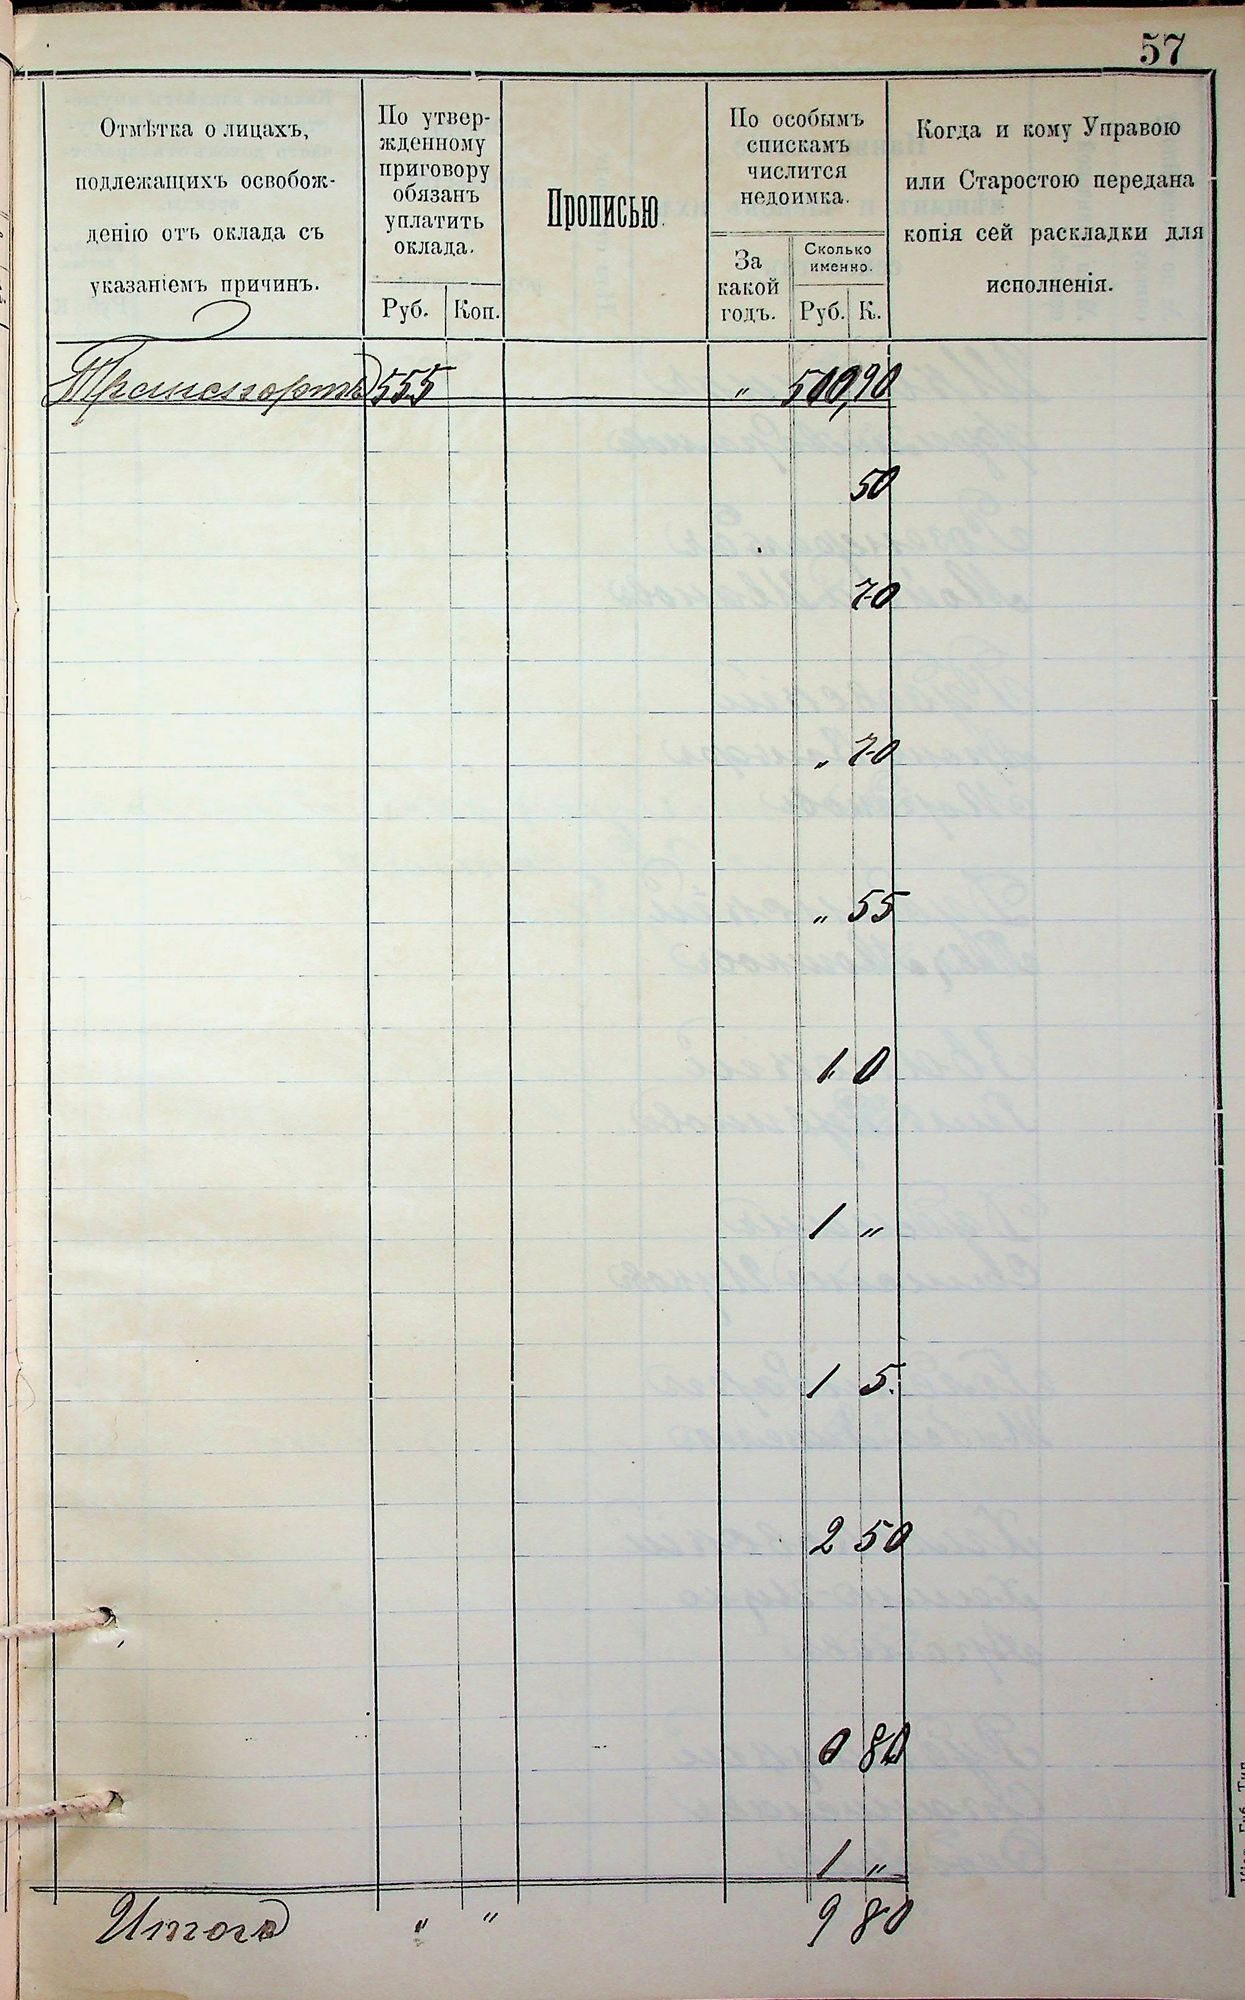 57
Отмѣтка о лицахъ,
подлежащихъ освобож-
денію отъ оклада съ
указаніемъ причинъ.
По утвер-
жденному
приговору
обязанъ
уплатить
оклада.
Руб. Коп.
Прописью.
По особымъ
спискамъ
числится
недоимка.
За
какой
годъ.
Сколько
именно.
Руб. К.
Когда и кому Управою
или Старостою передана
копія сей раскладки для
исполненія.
Транспортъ 555 " 500,90
50
70
" 70
" 55
1 0
1 "
1 5.
2 50
0 80
1 "
Итого " " 9 80